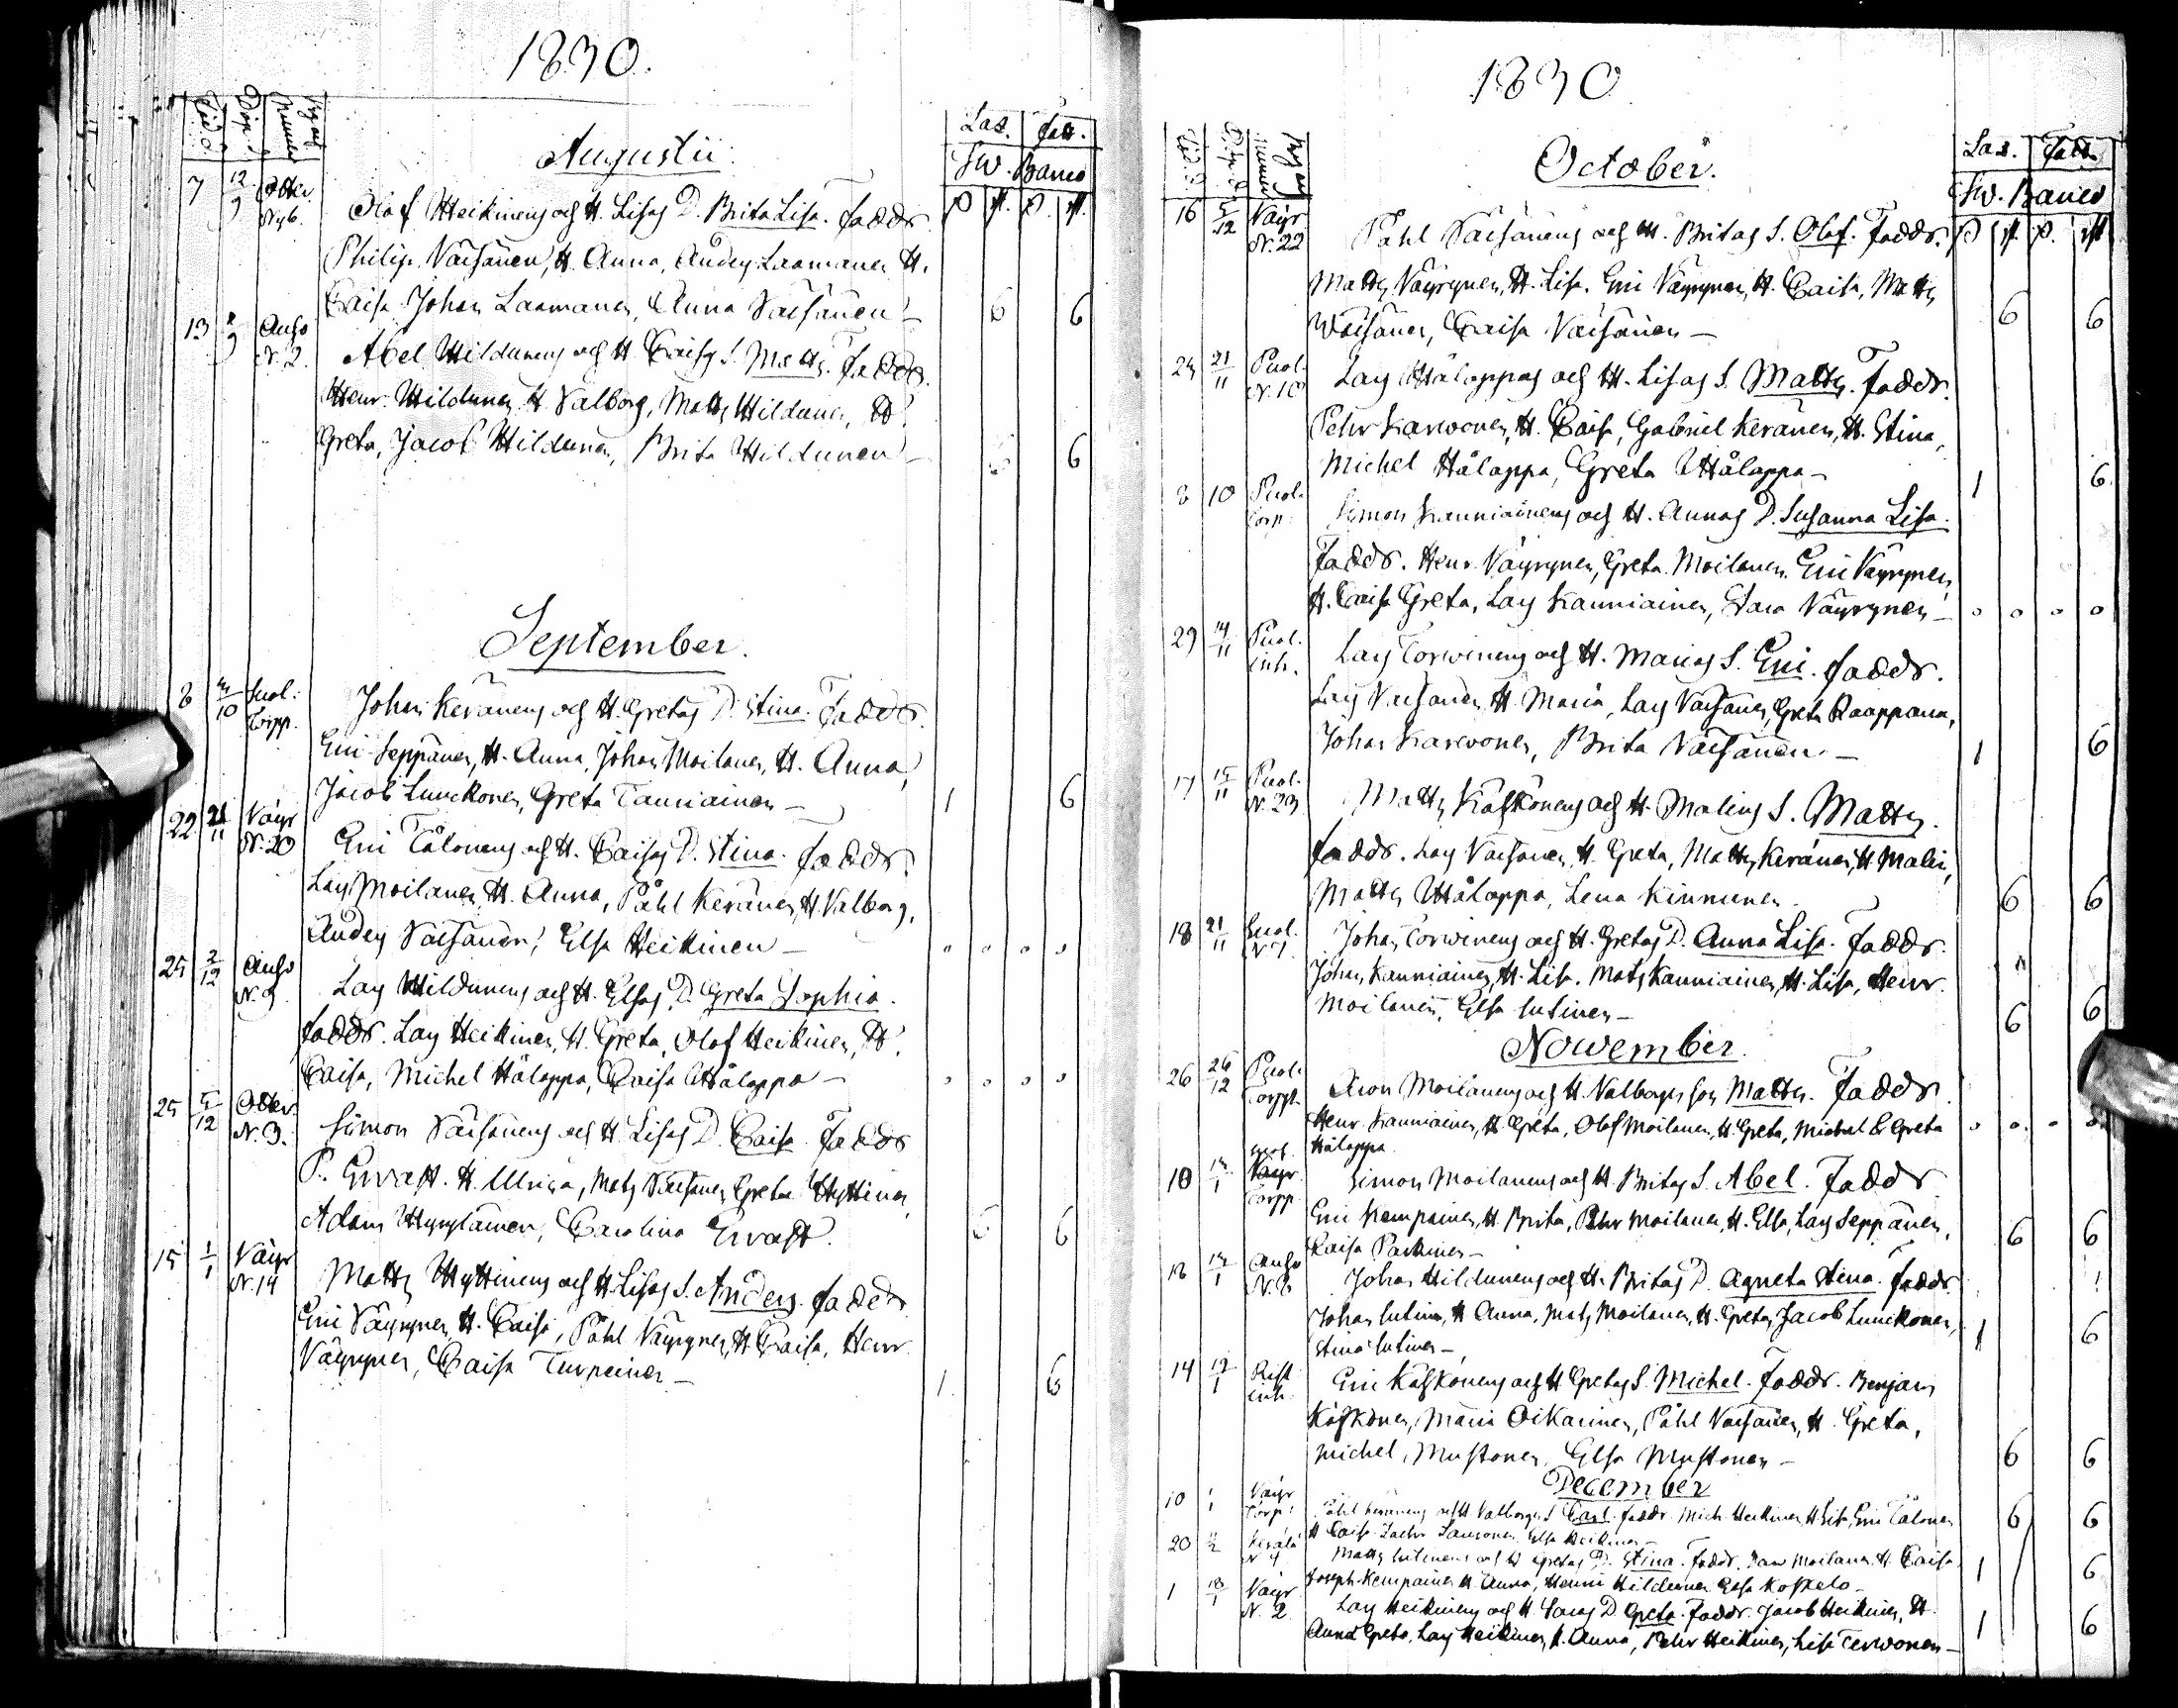 1830.
Föd. Döp. By och Nummer
Las. fatt.
Augustii.
Sw. Banco
7 12/9 Otter. Nyb. Olof Heikinens och H. Lisas D. Brita Lisa. Faddr.
Philip Väisänen, H. Anna, Anders Laamanen H.
Caisa. Johan Laamanen, Anna Väisänen – 6 6
13 9 Anso N. 2. Abel Hildunens och H. Caisas S. Matts. Faddr.
Henr. Hildunen H. Valborg, Matts Hildunen, H.
Greta, Jacob Hildunen, Brita Hildunen – 6 6
September.
8 3/10 Suol. Torpp. Johan Keränens och H. Gretas D. Stina. Faddr.
Eric Seppänen, H. Anna, Johan Moilanen, H. Anna,
Jacob Lunckonen, Greta Tauriainen – 1 6
22 21/11 Väyr N. 20 Eric Tålonens och H. Caisas D. Stina. Faddr.
Lars Moilanen, H. Anna, Påhl Keränen, H. Valborg,
Anders Väisänen, Elsa Heikinen –
25 3/12 Anso N. 9 Lars Hildunens och H. Elsas D. Greta Sophia.
Faddr. Lars Heikinen, H. Greta, Olof Heikinen, H.
Caisa, Michel Hålappa, Caisa Hålappa –
25 5/12 Otter. N. 3. Simon Väisänens och H. Lisas D. Caisa. Faddr
P. Ervast. H. Ulrica, Mats Väisänen Greta Hyttinen,
Adam Hyrylainen, Carolina Ervast. 6 6
15 1/1 Väyr N. 14 Matts Hyttinens och H. Lisas S. Anders. Faddr
Eric Väyrynen, H. Caisa, Påhl Väyrynen, H. Caisa, Henr
Väyrynen, Caisa Turpeinen – 1 6
1830
Las. Fatt.
October.
Sw. Banco
16 5/12 Väyr N. 22 Påhl Väisänens och H. Britas S. Olof. Faddr.
Matts Väyrynen, H. Lisa. Eric Väyrynen, H. Caisa, Matts
Wäisänen, Caisa Väisänen – 6 6
24 21/11 Puol. N. 10 Lars Hålappas och H. Lisas S. Matts. Faddr.
Pehr Karvonen, H. Caisa, Gabriel Keränen, H. Stina,
Michel Hålappa, Greta Hålappa – 1 6
8 10 Puol. Torp. Simon Kauniainens och H. Annas D. Susanna Lisa.
Faddr. Henr. Väyrynen, Greta Moilanen. Eric Väyrynen,
H. Caisa Greta, Lars Kauniainen, Sara Väyrynen –
29 14/11 Puol. inh. Lars Torvinens och H. Marias S. Eric. Faddr.
Lars Väisänen H. Maria, Lars Väisänen, Greta Raappana,
Johan Karvonen, Brita Väisänen – 1 6
17 15/11 Puol. N. 23 Matts Käskönens och H. Malins S. Matts.
Faddr. Lars Väisänen, H. Greta, Matts Keränen, H. Malin,
Matts Hålappa, Lena Kinnunen. 6 6
18 21/11 Suol. N. 7 Johan Torwinens och H. Gretas D. Anna Lisa. Faddr.
Johan Kauniainen, H. Lisa. Mats Kauniainen, H. Lisa, Henr.
Moilanen, Elsa Lutinen – 6 6
Nowember.
26 26/12 Puol. Torpp. Aron Moilanens och H. Valborgs son Matts. Faddr.
Henr. Kauniainen, H. Greta, Olof Moilanen, H. Greta, Michel & Greta
Hålappa.
18 Torpp. Simon Moilanens och H. Britas S. Abel. Faddr
Eric Kempainen, H. Brita, Pehr Moilanen, H. Elsa, Lars Seppänen,
Kaisa Parkinen – 6 6
Anso N. 8 Johan Hildunens och H. Britas D. Agneta Stina. Faddr.
Johan Lutinen, H Anna, Mats Moilanen, H. Greta, Jacob Lunckonen,
Stina Lutinen – 1 6
14 Rist inh. Eric Käskönens och H Gretas S. Michel. Faddr. Benjam
Käskönen, Maria Oikarinen, Påhl Väisänen, H. Greta,
Michel Mustonen, Elsa Mustonen – 6 6
December
10 1/1 Väyr Torp. Påhl Keränens och H Valborgs S Carl. Faddr. Mich. Heikinen, H Lisa, Eric Tålonen
H Caisa Zachr Elsa Heikinen – 6 6
20 Kerälä N 4 Matts Lutinens och H Gretas D. Stina. Faddr. Moilanen H. Caisa
Joseph Kempainen H. Anna, Henric Hildunen Elsa Koskelo – 1 6
1 Väyr N. 2 Lars Heikinens och H. Saras D Greta. Faddr. Jacob Heikinen, H.
Anna Greta, Lars Heikinen, H. Anna, Pehr Heikinen, Lisa Terwonen – 1 6